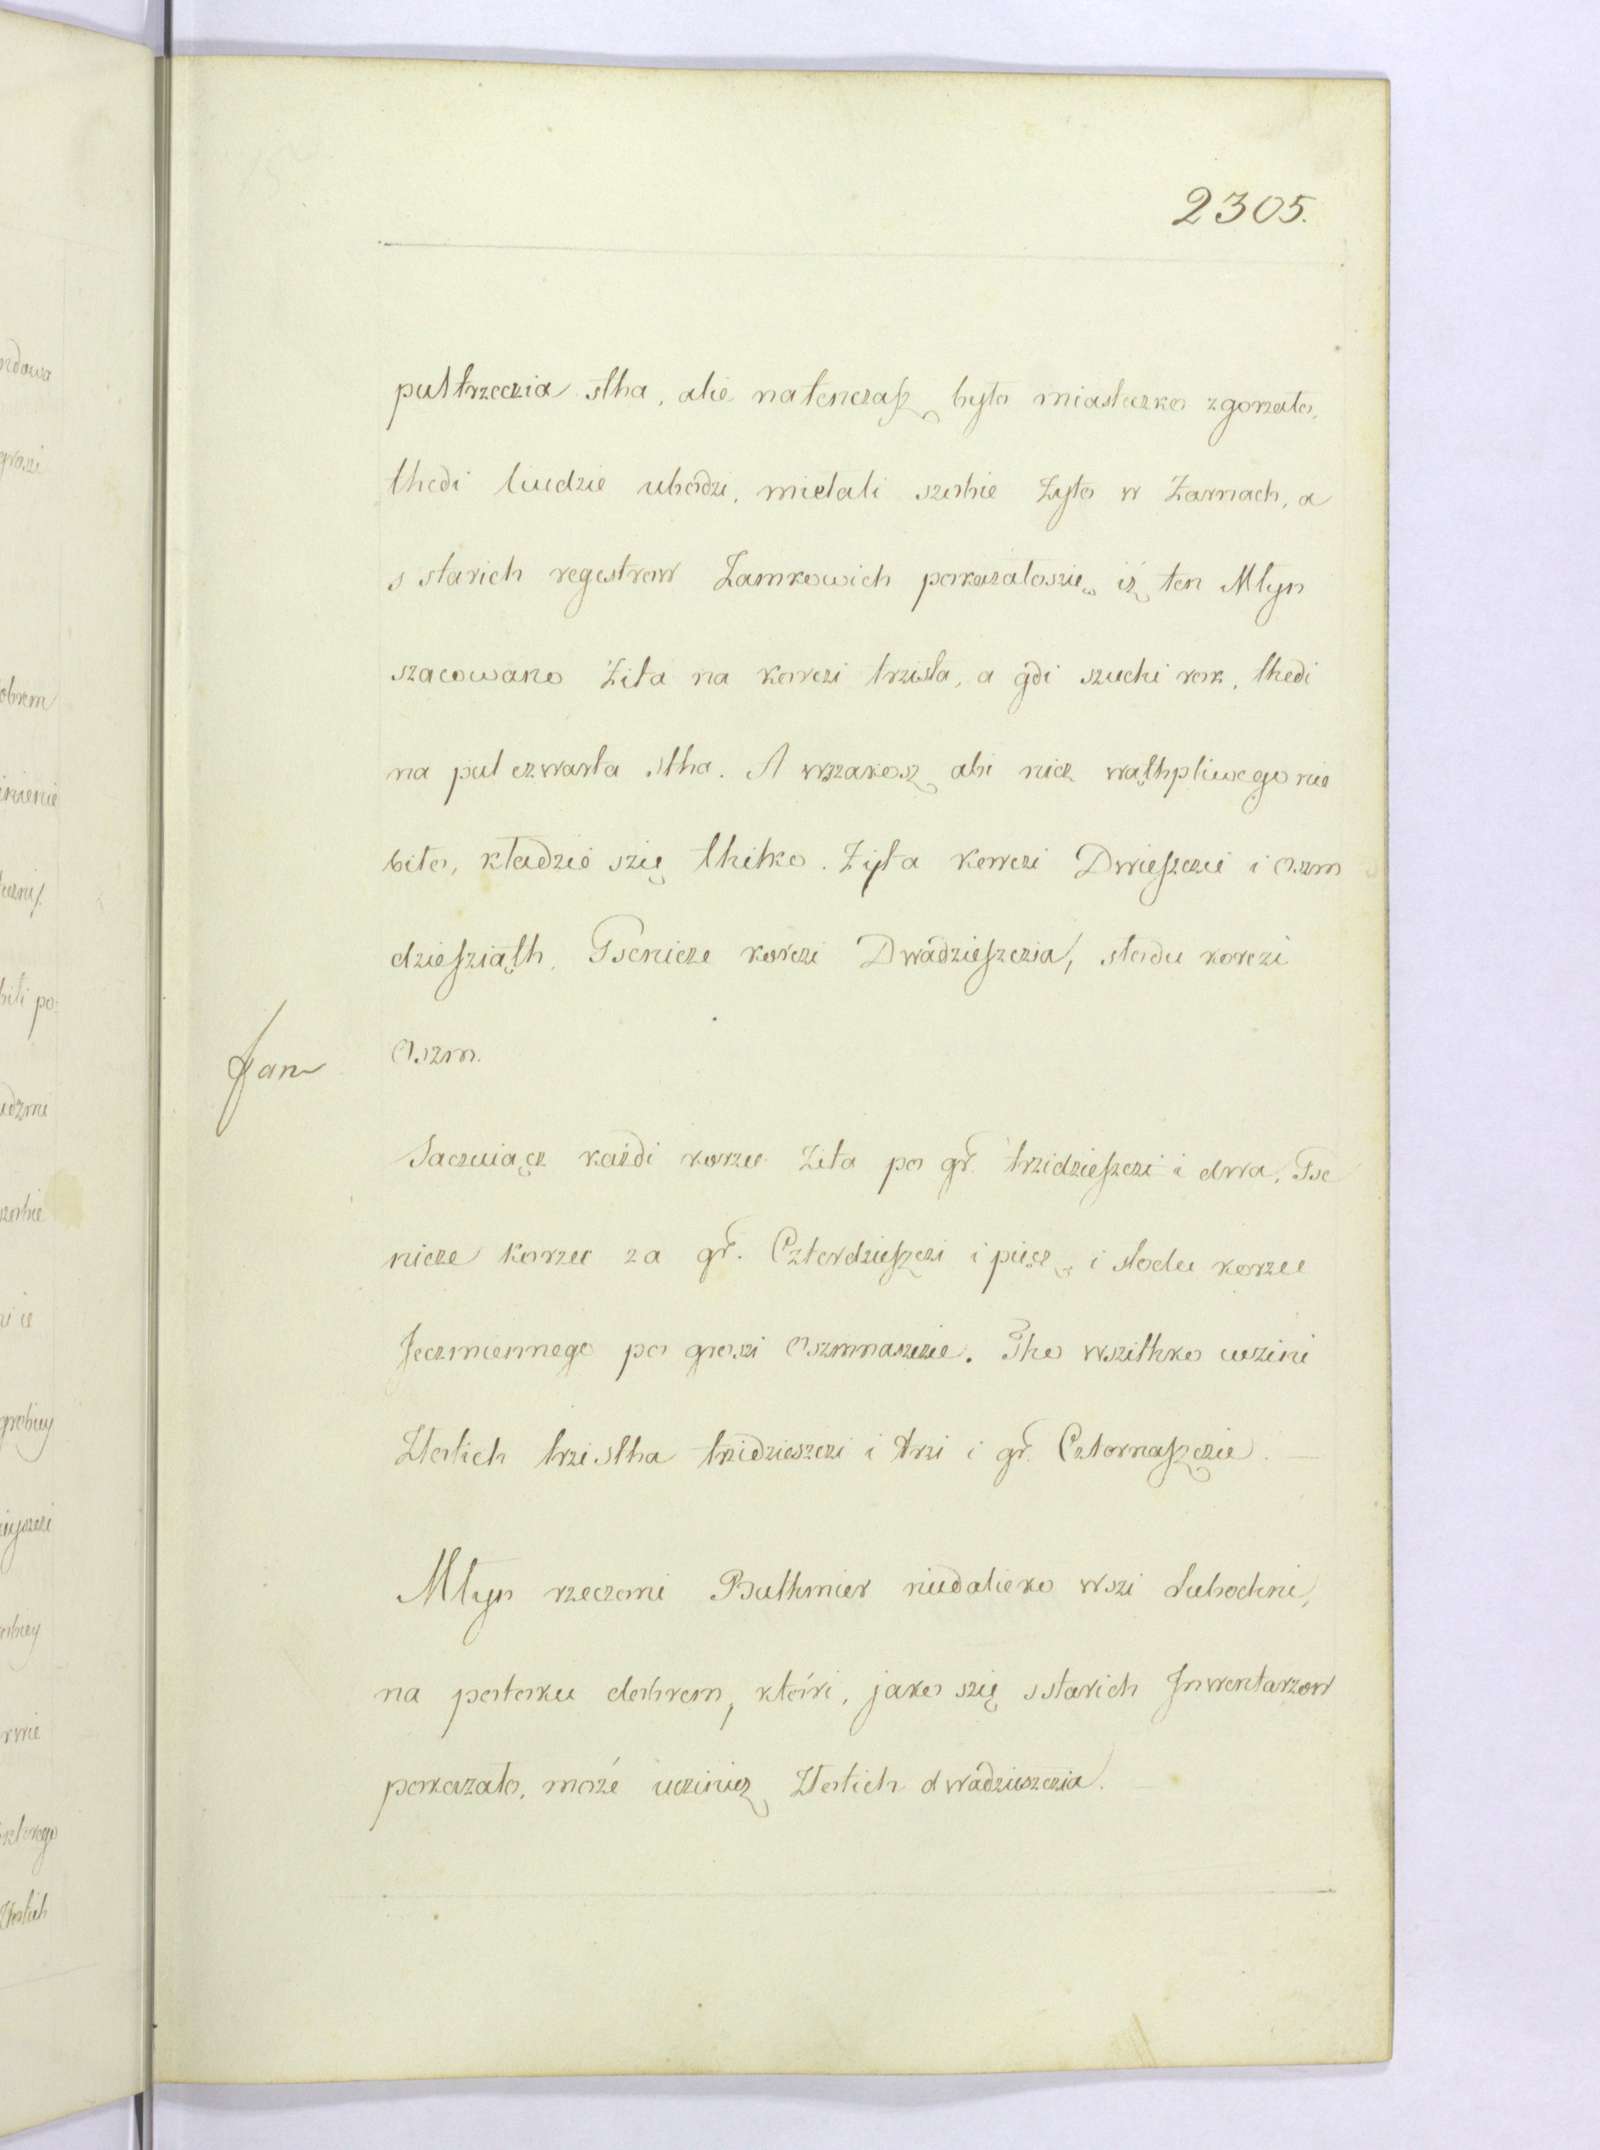 2305.
pultrzeczia stha, alie natenczasz było miasteczko zgorzało,
thedi liudzie ubodzi, mielali szobie Zyto w Zarnach, a
s starich regestrow Zamkowich pokazałoszię iż ten Młyn
szacowano Zita na korczi trzista, a gdi szuchi rok, thedi
na pul czwarta stha. A wszakosz abi nicz wąthpliwego nie
biło, kładzie szię thilko. Zyta korczi Dwieszczie i oszm
dziesziąth, Psenicze korczi Dwadzieszczia, słodu korczi
Oszm.
Sacuiącz każdi korzec Zita po gr. trzidzieszczi i dwa, Pse
nicze korzec za gr. Czterdzieszczi i pięcz i słodu korzec
Jeczmiennego po groszi Oszmnaszczie. Tho wszithko uczini
Złotich trzi stha trzidzieszczi i trzi i gr. Czternaszczie. —
Młyn rzeczoni Bulhmier niedalieko wszi Lubochni,
na potoku dobrem, któri, jako szię s starich Inwentarzow
pokazało, może uczinicz Złotich dwadzieszczia. —